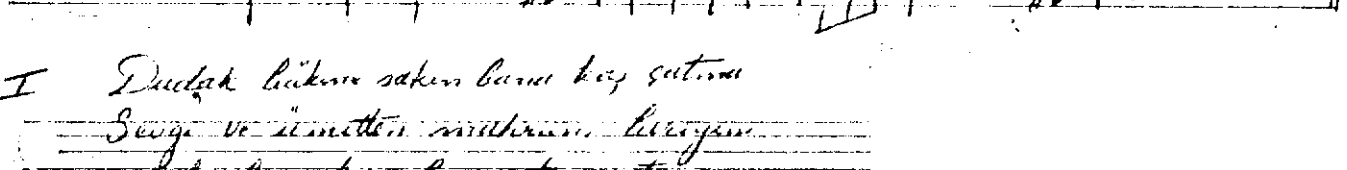 I Dudak bükme sakın bana kaş çatma
Sevgi ve ümitten mahrum biriyim